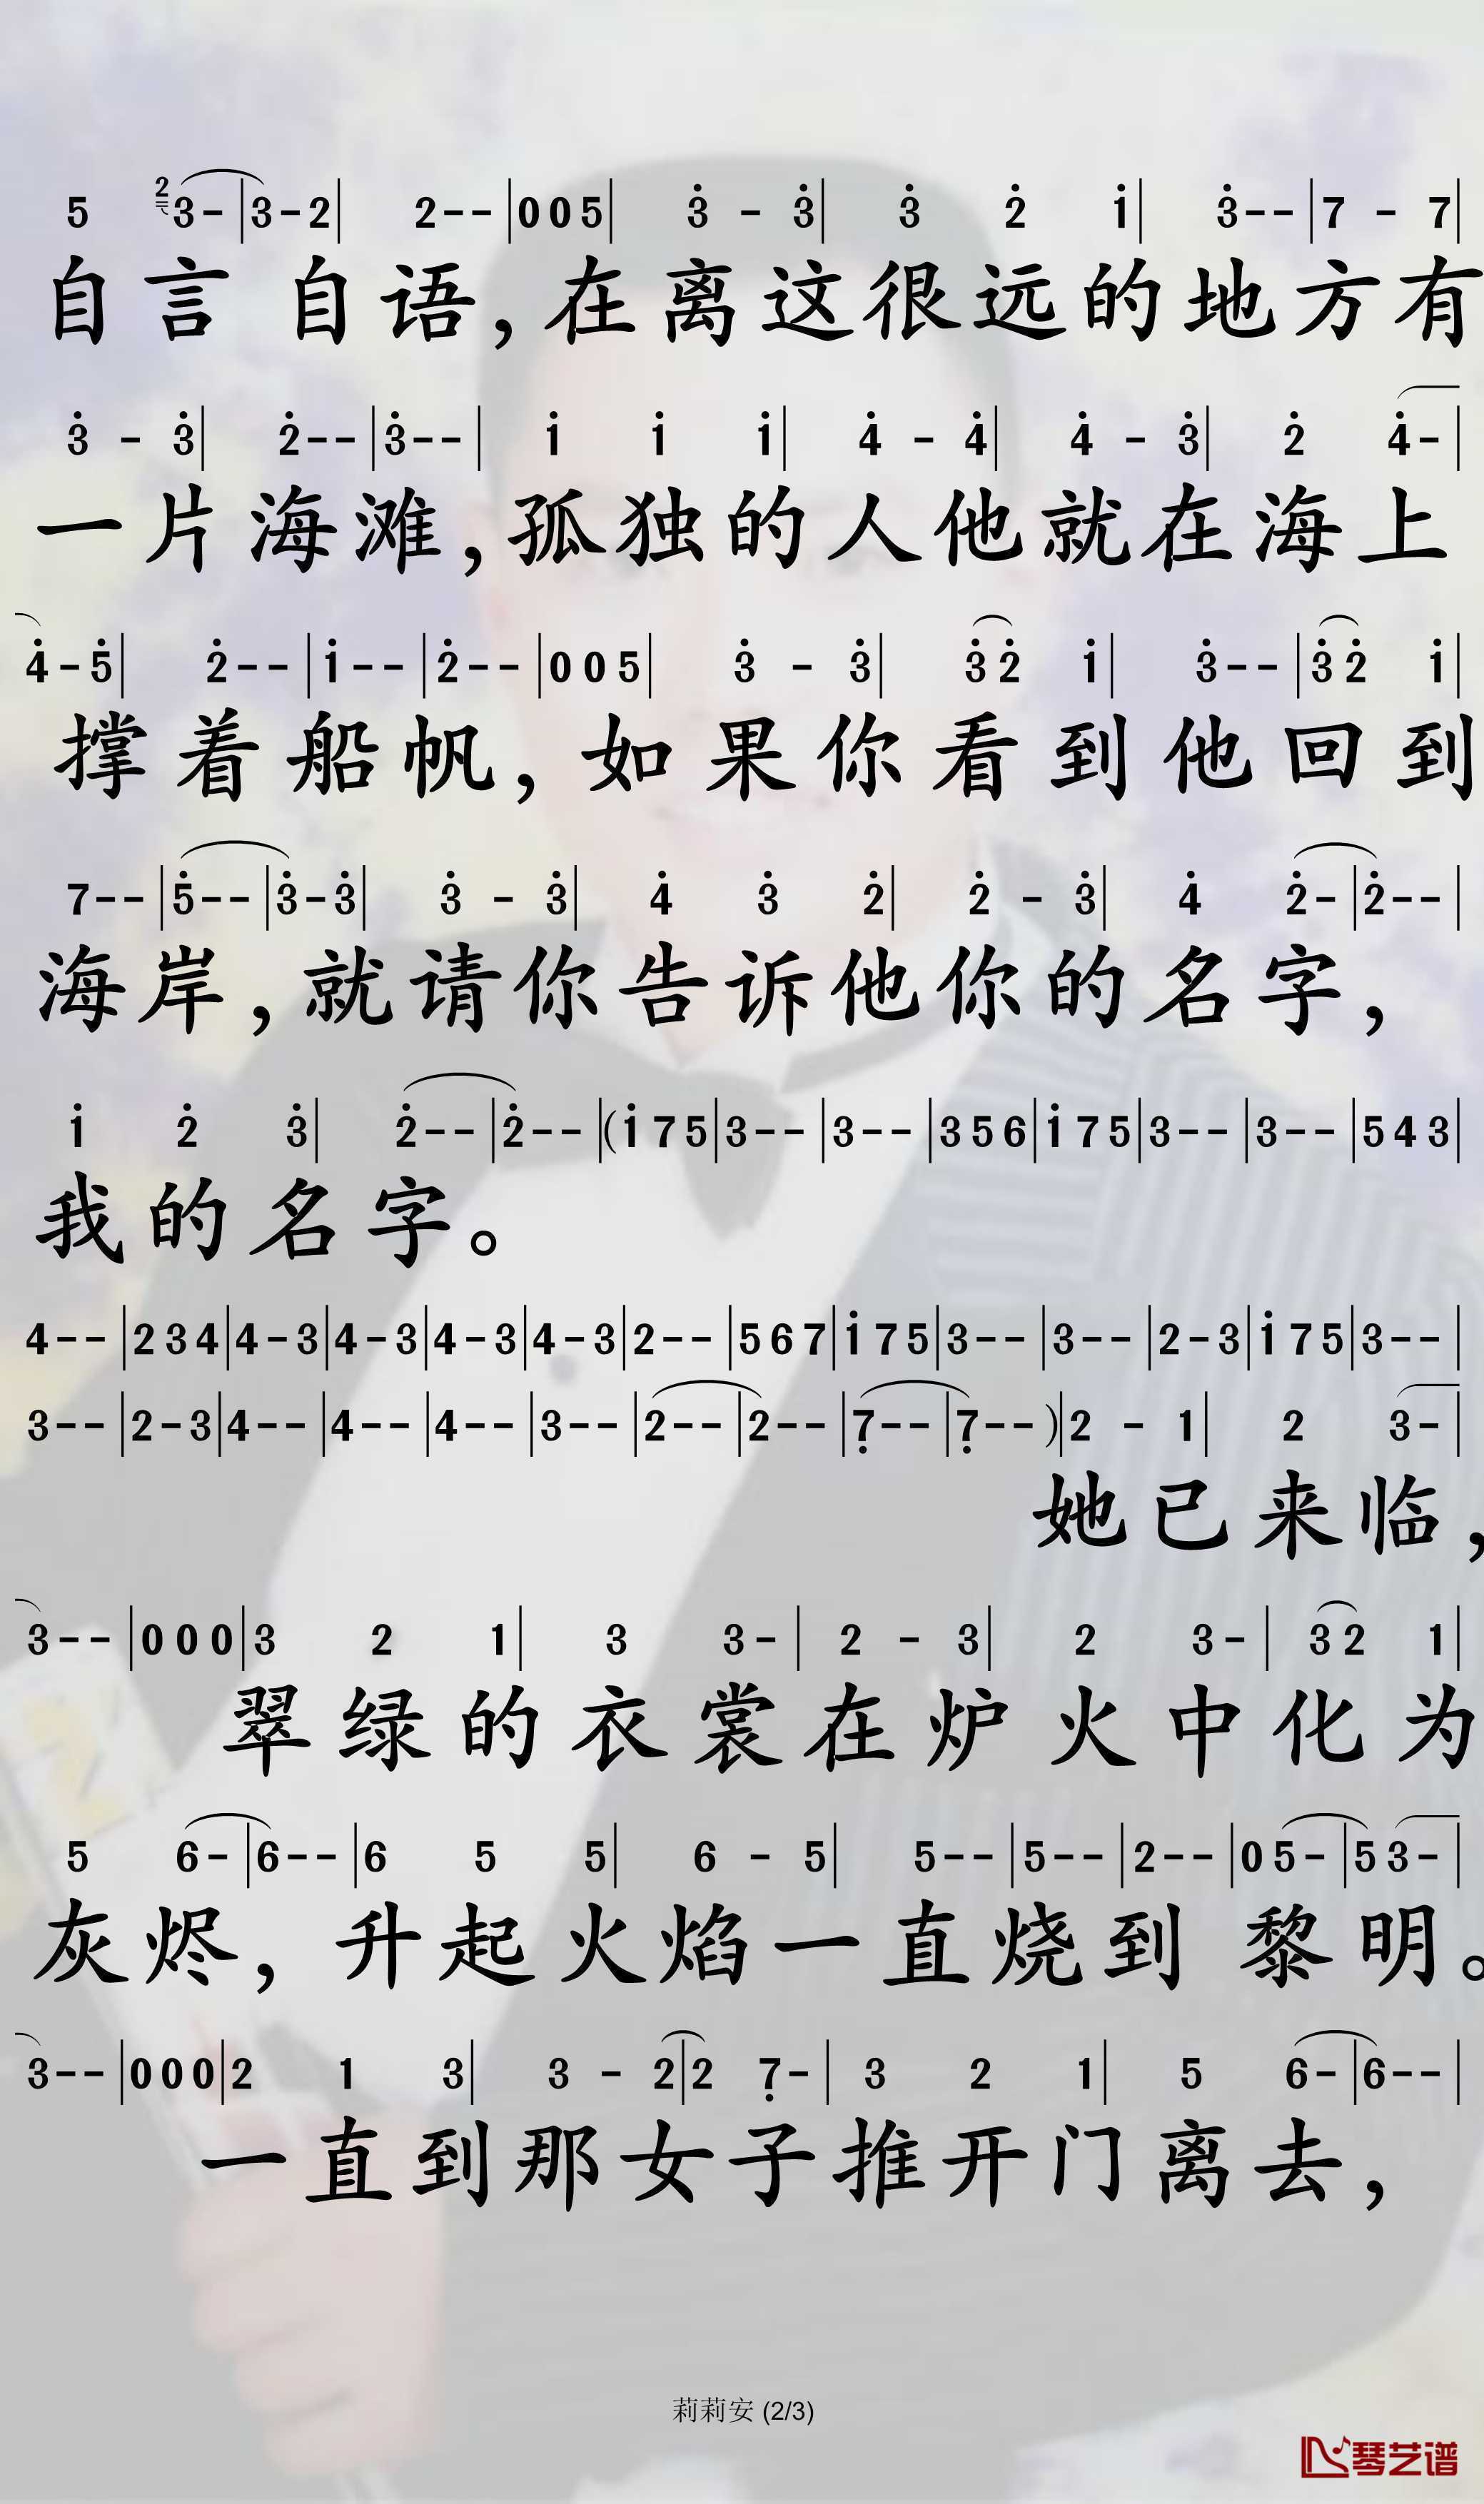 5 2 3-|3-2| 2--|005| 3̇ - 3̇| 3̇ 2̇ 1̇| 3̇--|7 - 7|
自言 自语,在离这很远的地方有
3̇ - 3̇| 2̇--|3̇--| 1̇ 1̇ 1̇| 4̇ - 4̇| 4̇ - 3̇| 2̇ 4̇-|
一片海滩,孤独的人他就在海上
4̇-5̇| 2̇--|1̇--|2̇--|005| 3̇ - 3̇| 3̇2̇ 1̇| 3̇--|3̇2̇ 1̇|
撑着船帆,如果你看到他回到
7--|5̇--|3̇-3̇| 3̇ - 3̇| 4̇ 3̇ 2̇| 2̇ - 3̇| 4̇ 2̇-|2̇--|
海岸,就请你告诉他你的名字,
1̇ 2̇ 3̇| 2̇--|2̇--|(1̇75|3--|3--|356|1̇75|3--|3--|543|
我的名字。
4--|234|4-3|4-3|4-3|4-3|2--|567|1̇75|3--|3--|2-3|1̇75|3--|
3--|2-3|4--|4--|4--|3--|2--|2--|7̣--|7̣--)|2 - 1| 2 3-|
她已来临,
3--|000|3 2 1| 3 3-| 2 - 3| 2 3-| 32 1|
翠绿的衣裳在炉火中化为
5 6-|6--|6 5 5| 6 - 5| 5--|5--|2--|05-|53-|
灰烬,升起火焰一直烧到 黎明。
3--|000|2 1 3| 3 - 2|2 7̣-| 3 2 1| 5 6-|6--|
一直到那女子推开门离去,
莉莉安 (2/3)
琴艺谱